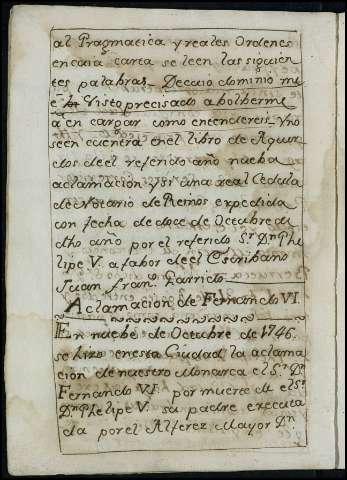 al Pragmatica y reales Ordenes
en cuia carta se leen las siguien
tes palabras De cuio dominio me
é Visto precisado a bolberme
a en cargar como entendereis. Y no
se en cuentra en el libro de Aquer
dos de el referido año nueba
aclamacion y si una real Cedula
de Notario de Reinos expedida
con fecha de doce de Octubre de
dho año por el referido Sr. Dn. Phe
lipe V. a fabor de el Escribano
Juan Fran. Garrido
Aclamacion de Fernando VI.
En nuebe de Octubre de 1746.
se hizo en esta Ciudad la aclama
cion de nuestro Monarca el Sr. Dn.
Fernando VI. por muerte de el Sr.
Dn. Phelipe V. su padre executa
da por el Alferez Mayor Dn.